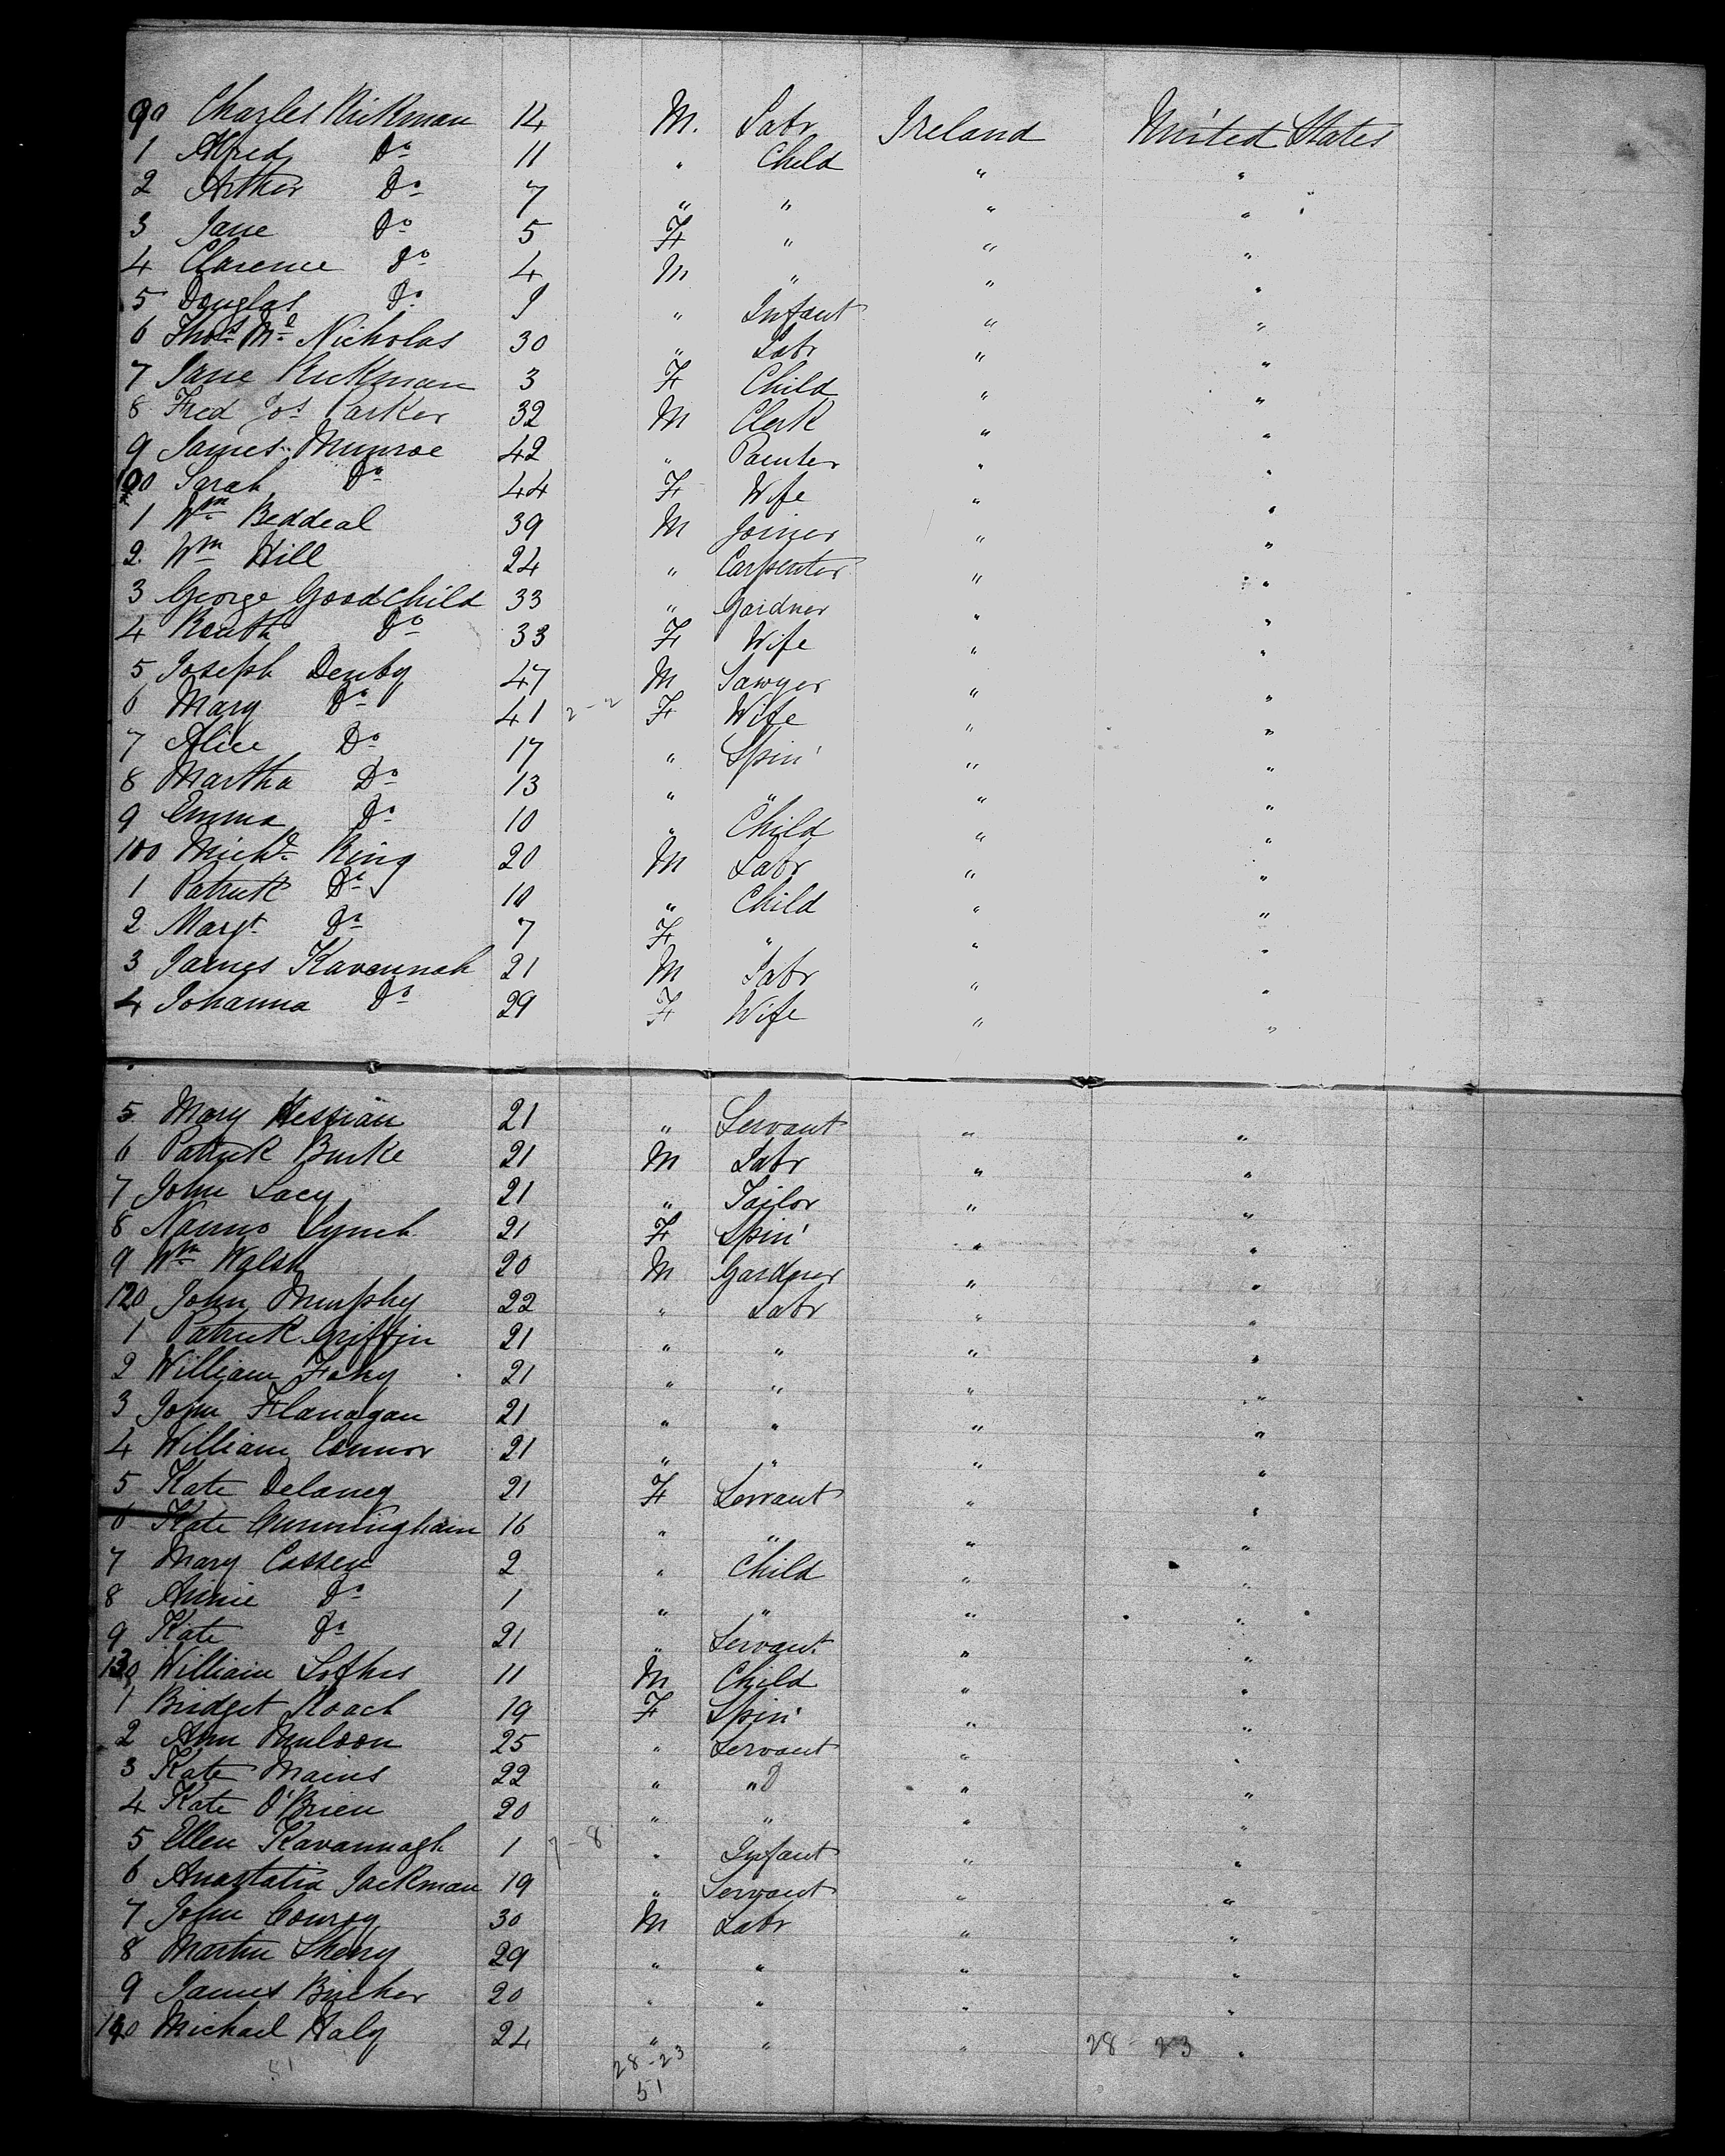 90 Charles Rickman 14 M. Labr Ireland United States
1 Alfred Do 11 " Child " "
2 Arthur Do 7 " " " "
3 Jane Do 5 F " " "
4 Clarence Do 4 M " " "
5 Douglas Do 9 " Infant " "
6 Thos Mc Nicholas 30 " Labr " "
7 Jane Rickman 3 F Child " "
8 Fred Jos Parker 32 M Clerk " "
9 James Munroe 42 " Painter " "
100 Sarah Do 44 F Wife " "
1 Wm Beddeal 39 M Joiner " "
2 Wm Hill 24 " Carpenter " "
3 George Goodchild 33 " Gardner " "
4 Do 33 F Wife " "
5 Joseph Denby 47 M Sawyer " "
6 Mary Do 41 2-2 F Wife " "
7 Alice Do 17 " Spin' " "
8 Martha Do 13 " " " "
9 Emma Do 10 " Child " "
110 Michl King 20 M Labr " "
1 Patrick Do 10 " Child " "
2 Margt Do 7 F " " "
3 James Kavannah 21 M Labr " "
4 Johanna Do 29 F Wife " "
5 Mary Hessian 21 " Servant " "
6 Patrick Burke 21 M Labr " "
7 John Lacy 21 " Tailor " "
8 Lynch 21 F Spin' " "
9 Wm Walsh 20 M Gardner " "
120 John Murphy 22 " Labr " "
1 Patrick Griffin 21 " " " "
2 William Fahy 21 " " " "
3 John Flanagan 21 " " " "
4 William Connor 21 " " " "
5 Kate Delaney 21 F Servant " "
6 Kate Cunningham 16 " " " "
7 Mary Cossen 2 " Child " "
8 Annie Do 1 " " " "
9 Kate Do 21 " Servant " "
130 William 11 M Child " "
1 Bridget Roach 19 F Spin' " "
2 Ann Muldoon 25 " Servant " "
3 Kate Mains 22 " " " "
4 Kate O'Brien 20 " " " "
5 Ellen Kavannagh 1 7-8 " Infant " "
6 Anastatia Jackman 19 " Servant " "
7 John Conroy 30 M Labr " "
8 Martin Sherry 29 " " " "
9 James 20 " " " "
140 Michael Haly 24 " " " "
28-23 28-23
51 51